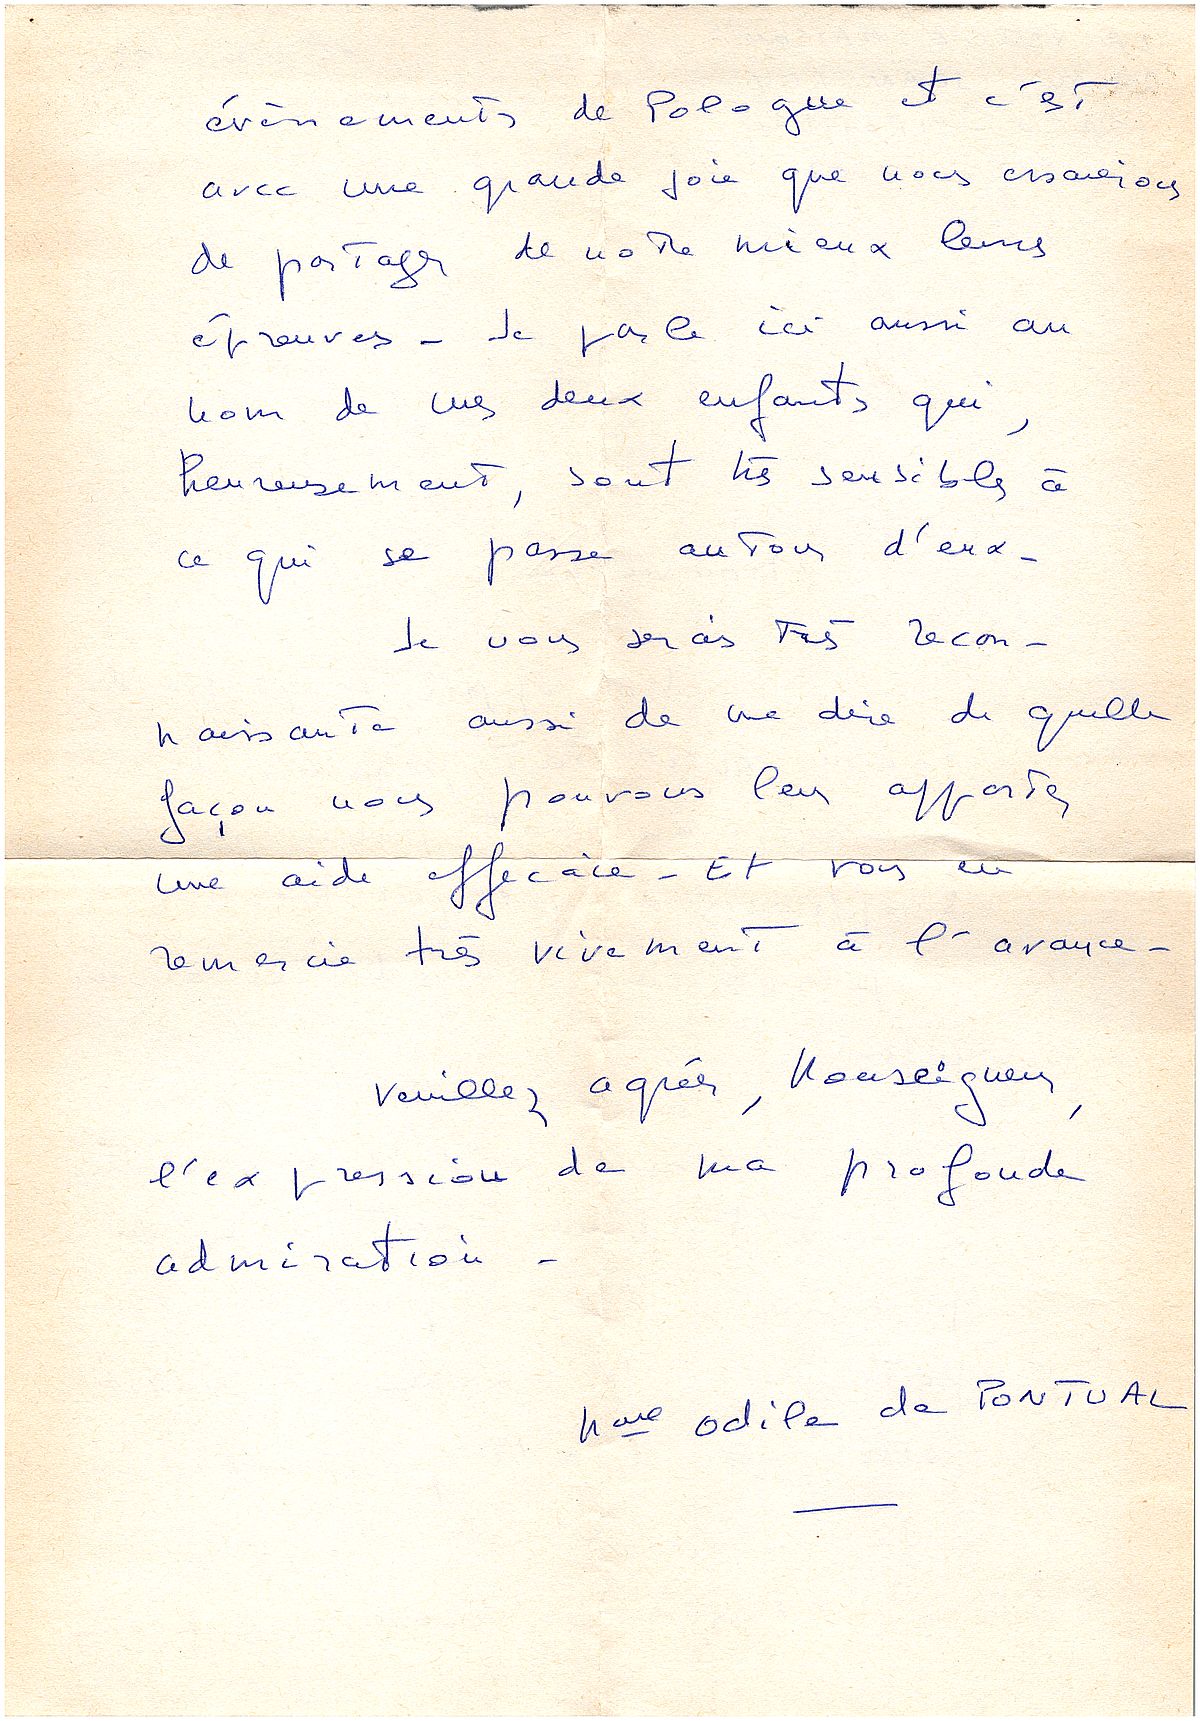 évènements de Pologne et c'est
avec une grande joie que nous essaierions
de partager de notre mieux leurs
épreuves - Je parle ici aussi au
nom de mes deux enfants qui,
heureusement, sont très sensibles à
ce qui se passe autour d'eux -
Je vous serais très recon-
naissante aussi de me dire de quelle
façon nous pouvons leur apporter
une aide efficace - Et vous en
remercie très vivement à l'avance -
Veuillez agréer, Monseigneur,
l'expression de ma profonde
admiration -
Mme Odile de PONTUAL